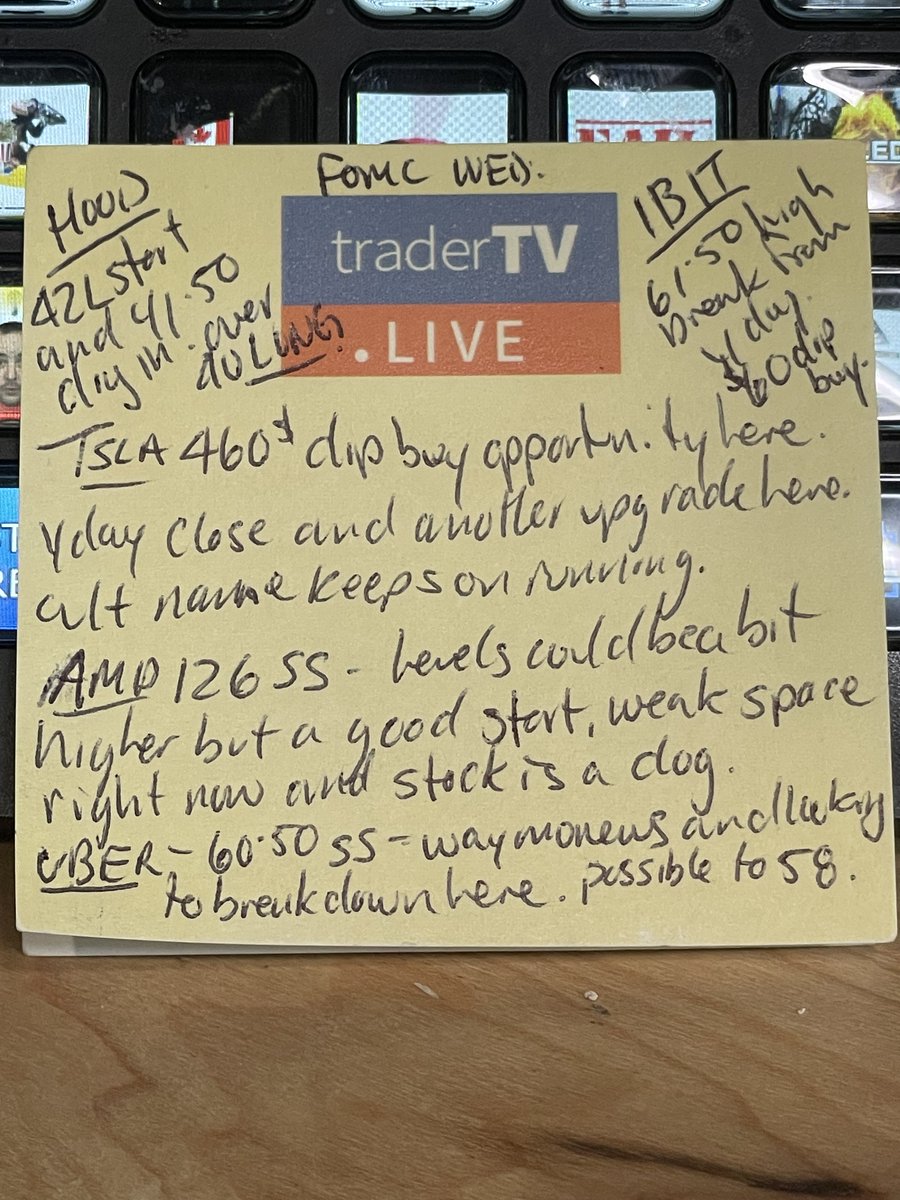 FOMC WED.
HOOD
42 L start
and 41.50
dig in. over
40 LONG.
traderTV
.LIVE
IBIT
61.50 high
break from
yday.
$60 dip
buy.
TSLA 460's dip buy opportunity here.
Yday close and another upgrade here.
cult name keeps on running.
AMD 126 SS - levels could be a bit
higher but a good start, weak space
right now and stock is a dog.
UBER - 60.50 SS - waymo news and looking
to breakdown here. possible to 58.